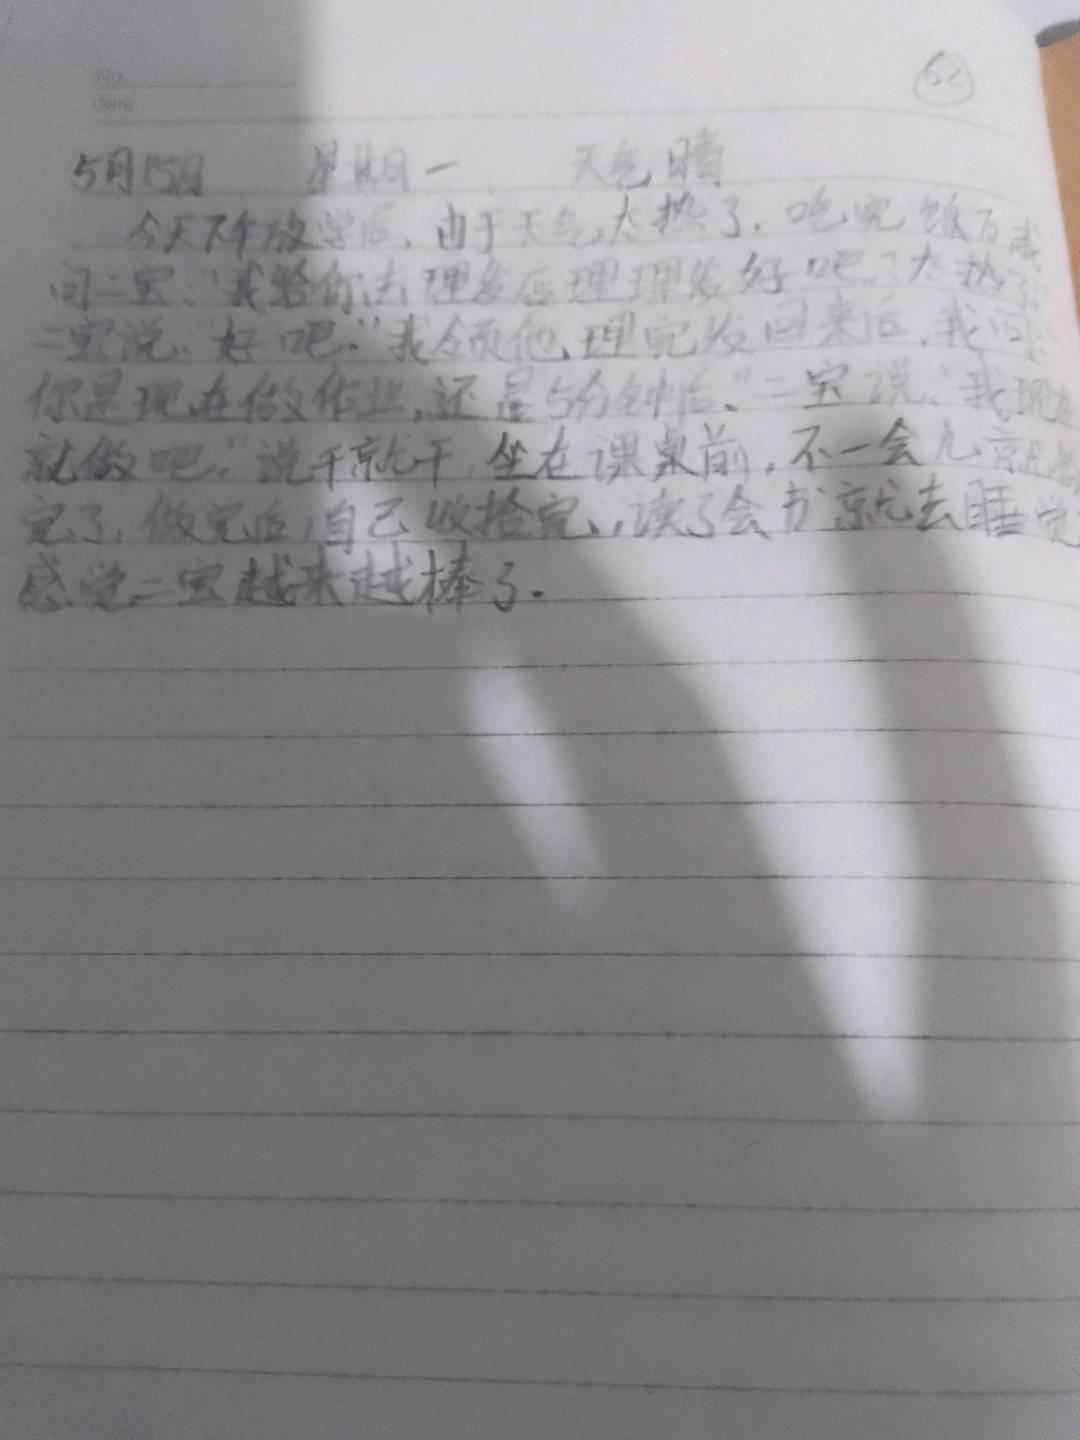 No.
Date
62
5月15日 星期一 天气晴
今天下午放学后,由于天气太热了,吃完饭后我
问二宝:"我给你去理发店理理发好吧?太热了"
二宝说:"好吧。"我领他理完发回来后,我问:
你是现在做作业,还是5分钟后。"二宝说:"我现在
就做吧。"说干就干,坐在课桌前,不一会儿就做
完了,做完后,自己收拾完,读了会书就去睡觉
感觉二宝越来越棒了.